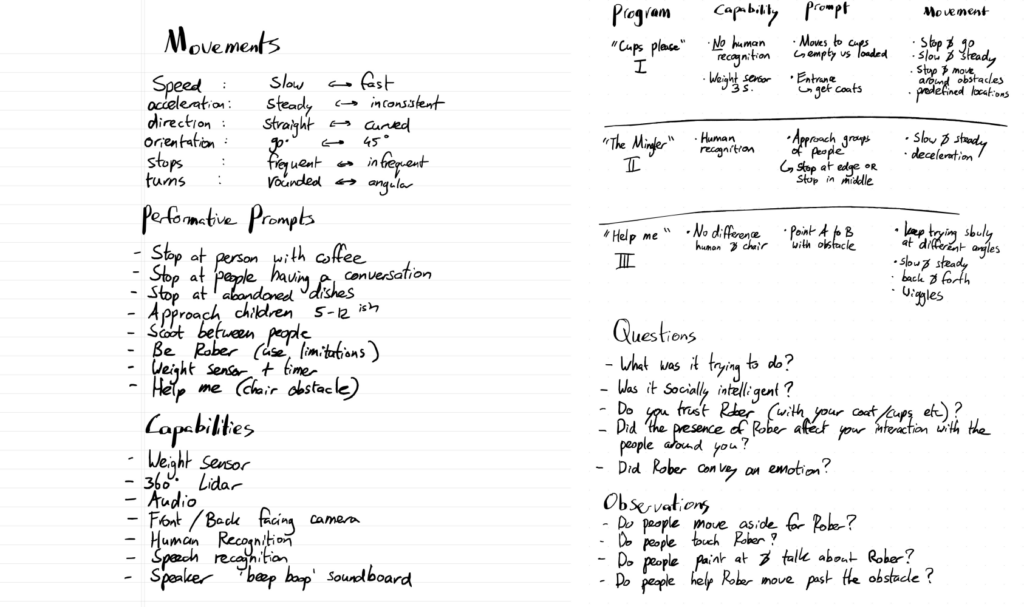 Movements
Speed : Slow ↔ fast
acceleration: Steady ↔ inconsistent
direction: Straight ↔ curved
orientation: 90° ↔ 45°
stops : frequent ↔ infrequent
turns : rounded ↔ angular
Performative Prompts
- Stop at person with coffee
- Stop at people having a conversation
- Stop at abandoned dishes
- Approach children 5-12 ish
- Scoot between people
- Be Rober (use limitations)
- Weight sensor + timer
- Help me (chair obstacle)
Capabilities
- Weight Sensor
- 360° Lidar
- Audio
- Front / Back facing camera
- Human Recognition
- Speech recognition
- Speaker 'beep boop' soundboard
Program Capability Prompt Movement
"Cups please"
I
• No human
recognition
• Weight sensor
3 s.
• Moves to cups
↳ empty vs loaded
• Entrance
↳ get coats
• Stop & go
• Slow & steady
• Stop & move
around obstacles
• predefined locations
"The Mingler"
II
• Human
recognition
• Approach groups
of people
↳ Stop at edge OR
Stop in middle
• Slow & steady
• deceleration
"Help me"
III
• No difference
human & chair
• Point A to B
with obstacle
• keep trying slowly
at different angles
• Slow & steady
• back & forth
• Wiggles
Questions
- What was it trying to do?
- Was it Socially intelligent?
- Do you trust Rober (with your coat/cups etc)?
- Did the presence of Rober affect your interaction with the
people around you?
- Did Rober convey an emotion?
Observations
- Do people move aside for Rober?
- Do people touch Rober?
- Do people point at & talk about Rober?
- Do people help Rober move past the obstacle?